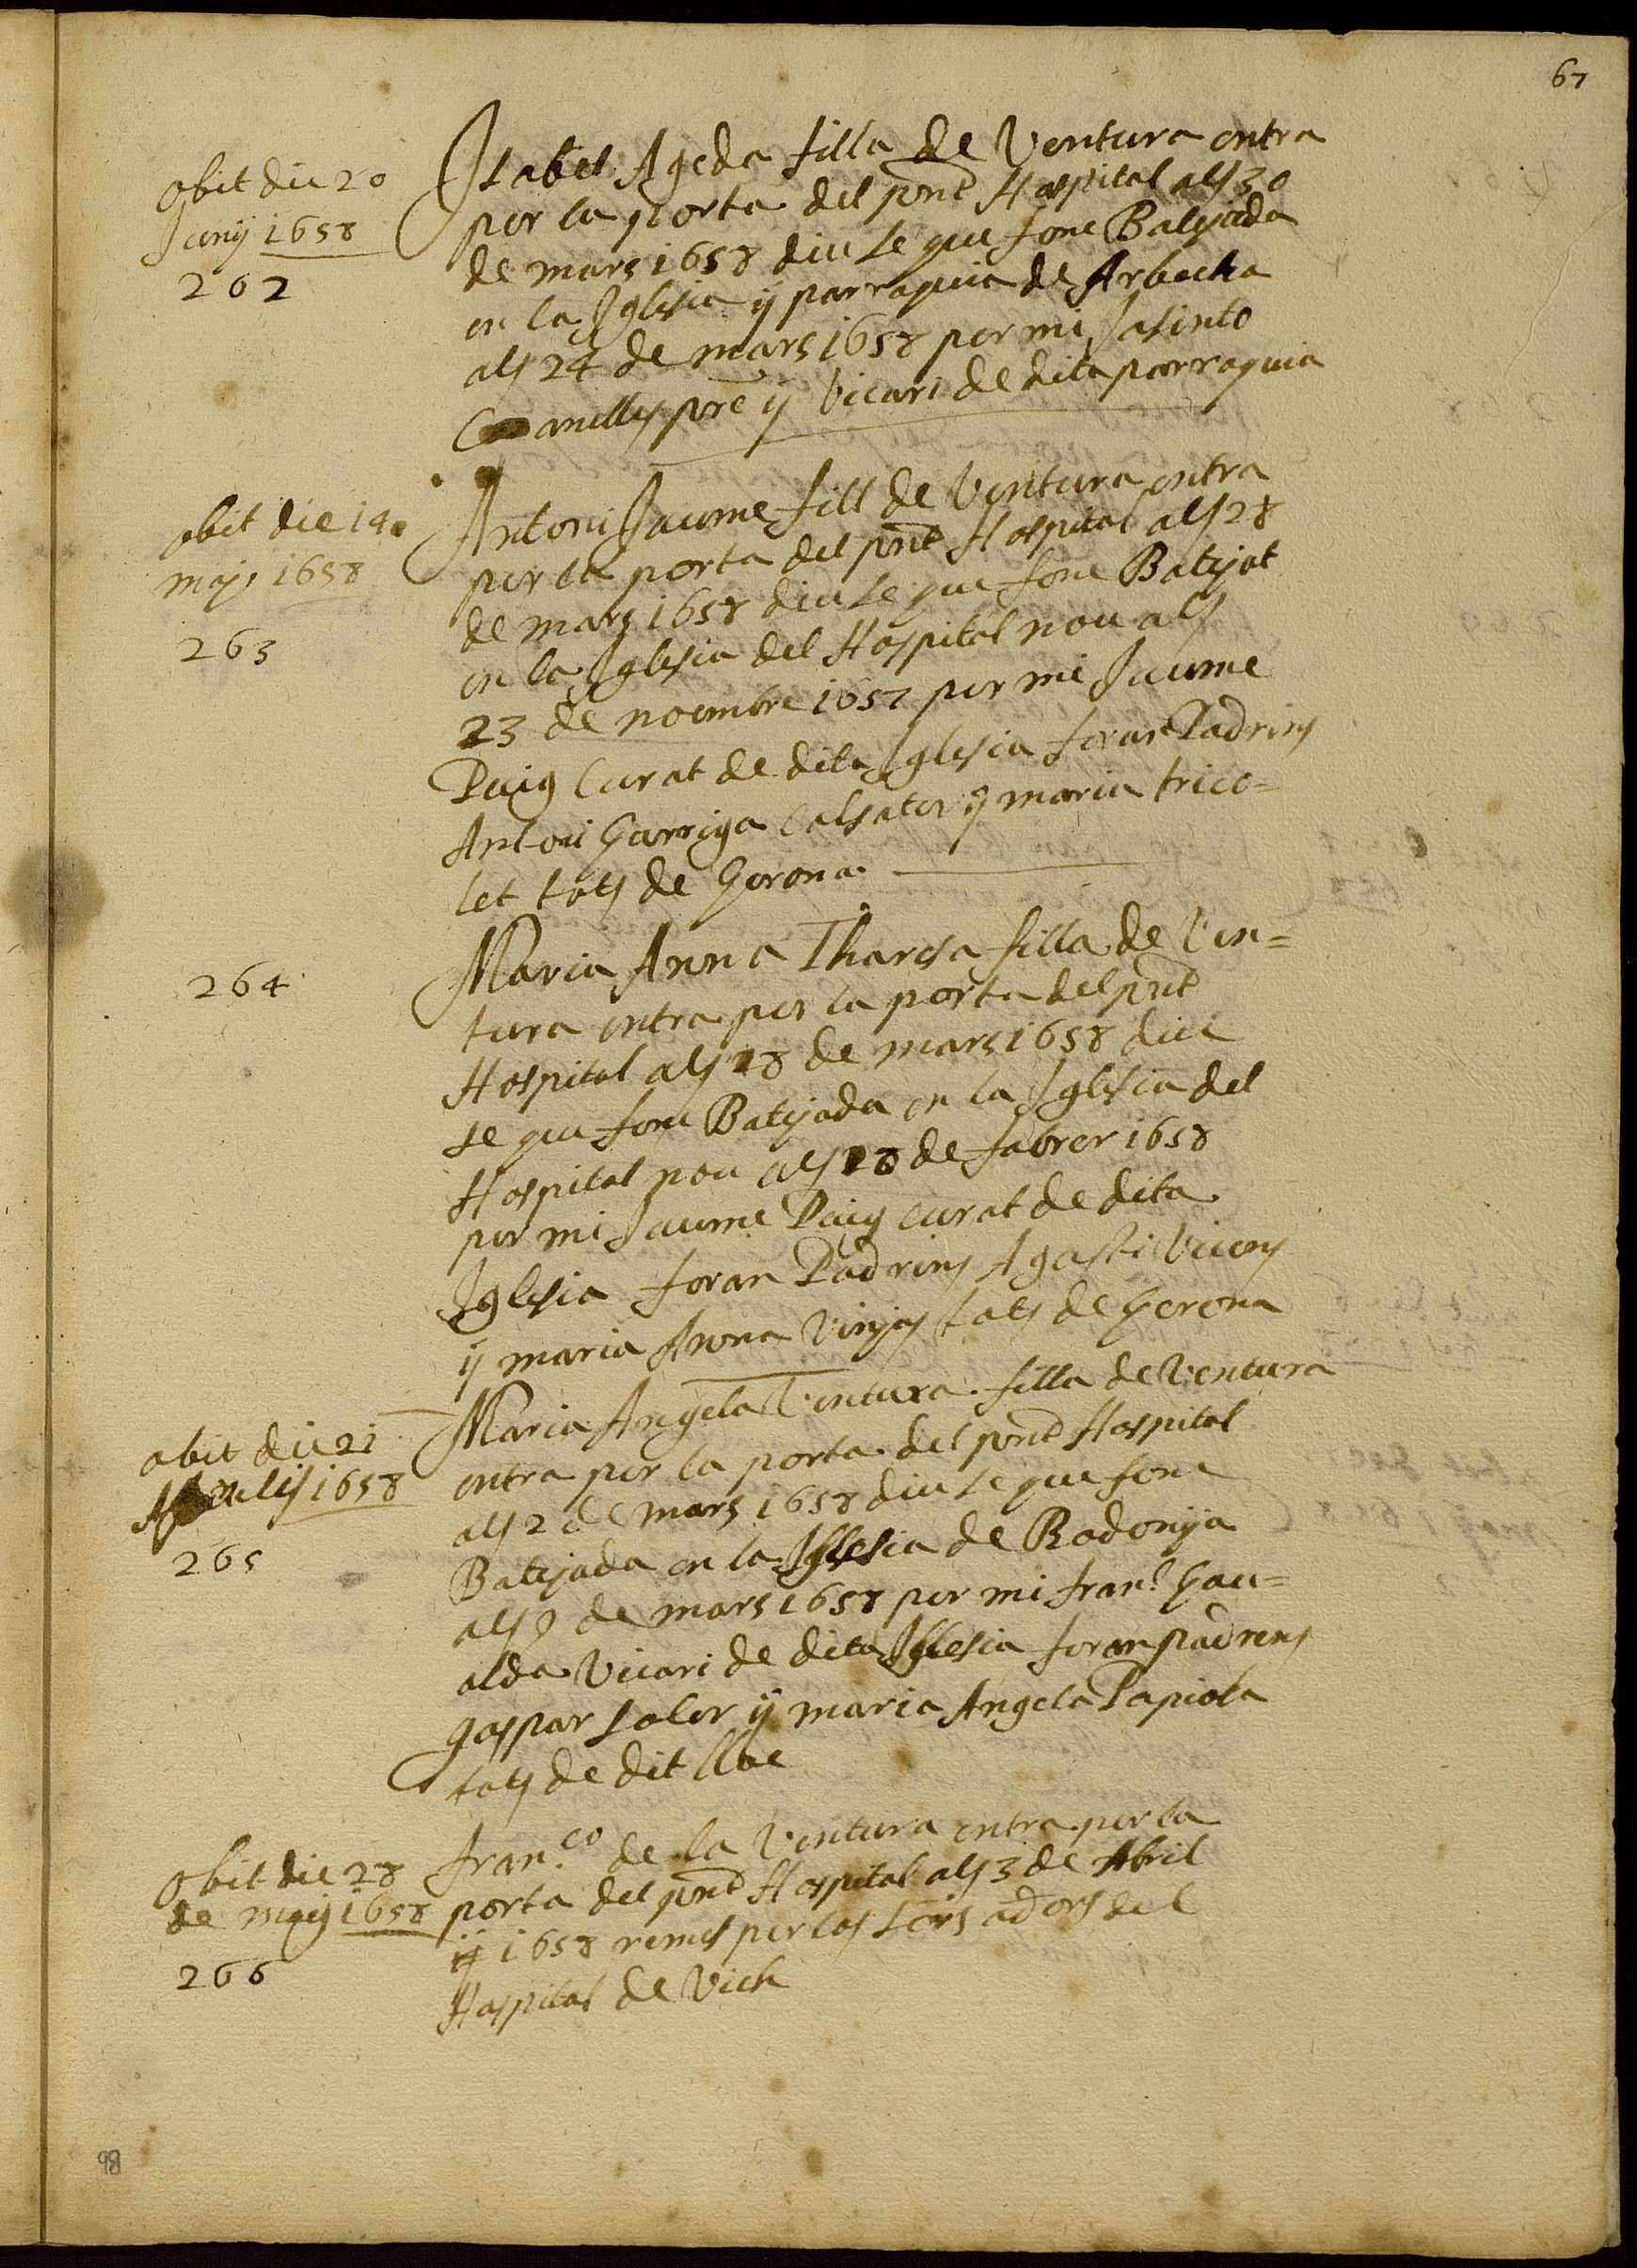 67
obit die 20
Juny 1658
262
Isabel Ageda filla de Ventura entra
per la porta del pnt Hospital als 30
de mars 1658 diuse que fonc Batejada
en la Iglesia ÿ parraquia de Arbecha
als 24 de mars 1658 per mi Jasinto
Canelles pre ÿ Vicari de dita parraquia
obit die 14
maÿs 1658
263
Antoni Jaume fill de Ventura entra
per la porta del pnt Hospital als 28
de mars 1658 diuse que fonc Batejat
en la Iglesia del Hospital nou als
23 de noembre 1657 per mi Jaume
Puig Curat de dita Iglesia foran Padrins
Antoni Garriga Calsater ÿ maria trico=
let tots de Gerona
264
Maria Anna Tharesa filla de Ven=
tura entra per la porta del pnt
Hospital als 28 de mars 1658 diu
se que fonc Batejada en la Iglesia del
Hospital nou als 28 de fabrer 1658
per mi Jaume Puig curat de dita
Iglesia foran Padrins Agasti Vicens
ÿ maria Anna Vinyas tots de Gerona
obit die 21
Aprilis 1658
265
Maria Angela Ventura filla de Ventura
entra per la porta del pnt Hospital
als 2 de mars 1658 diuse que fonc
Batejada en la Iglesia de Rodonÿa
als 9 de mars 1658 per mi fran.c Gau=
alda Vicari de dita Iglesia foran padrins
gaspar Soler ÿ maria Angela Papiola
tots de dit lloc
obit die 28
de maÿ 1658
266
fran.co de la Ventura entra per la
porta del pnt Hospital als 3 de Abril
1658 remes per los Sors adors del
Hospital de Vich
98